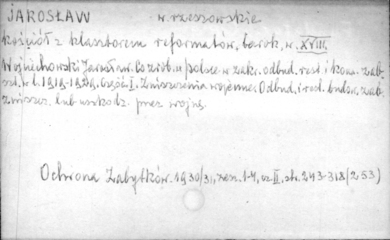 JAROSŁAW w. rzeszowskie
kościół z klasztorem reformatów, barok, w. XVIII.
Wojciechowski Jarosław. Co zrob. w Polsce w zakr. odbud. rest. i kons. zab-
szt. w l. 1919-1929. Część I. Zniszczenia wojenne. Odbud. i rest. budow. zab.
zniszcz. lub uszkodz. przez wojnę
Ochrona Zabytków. 1930/31, zesz. 1-4, cz. II, str. 243-318 (253)